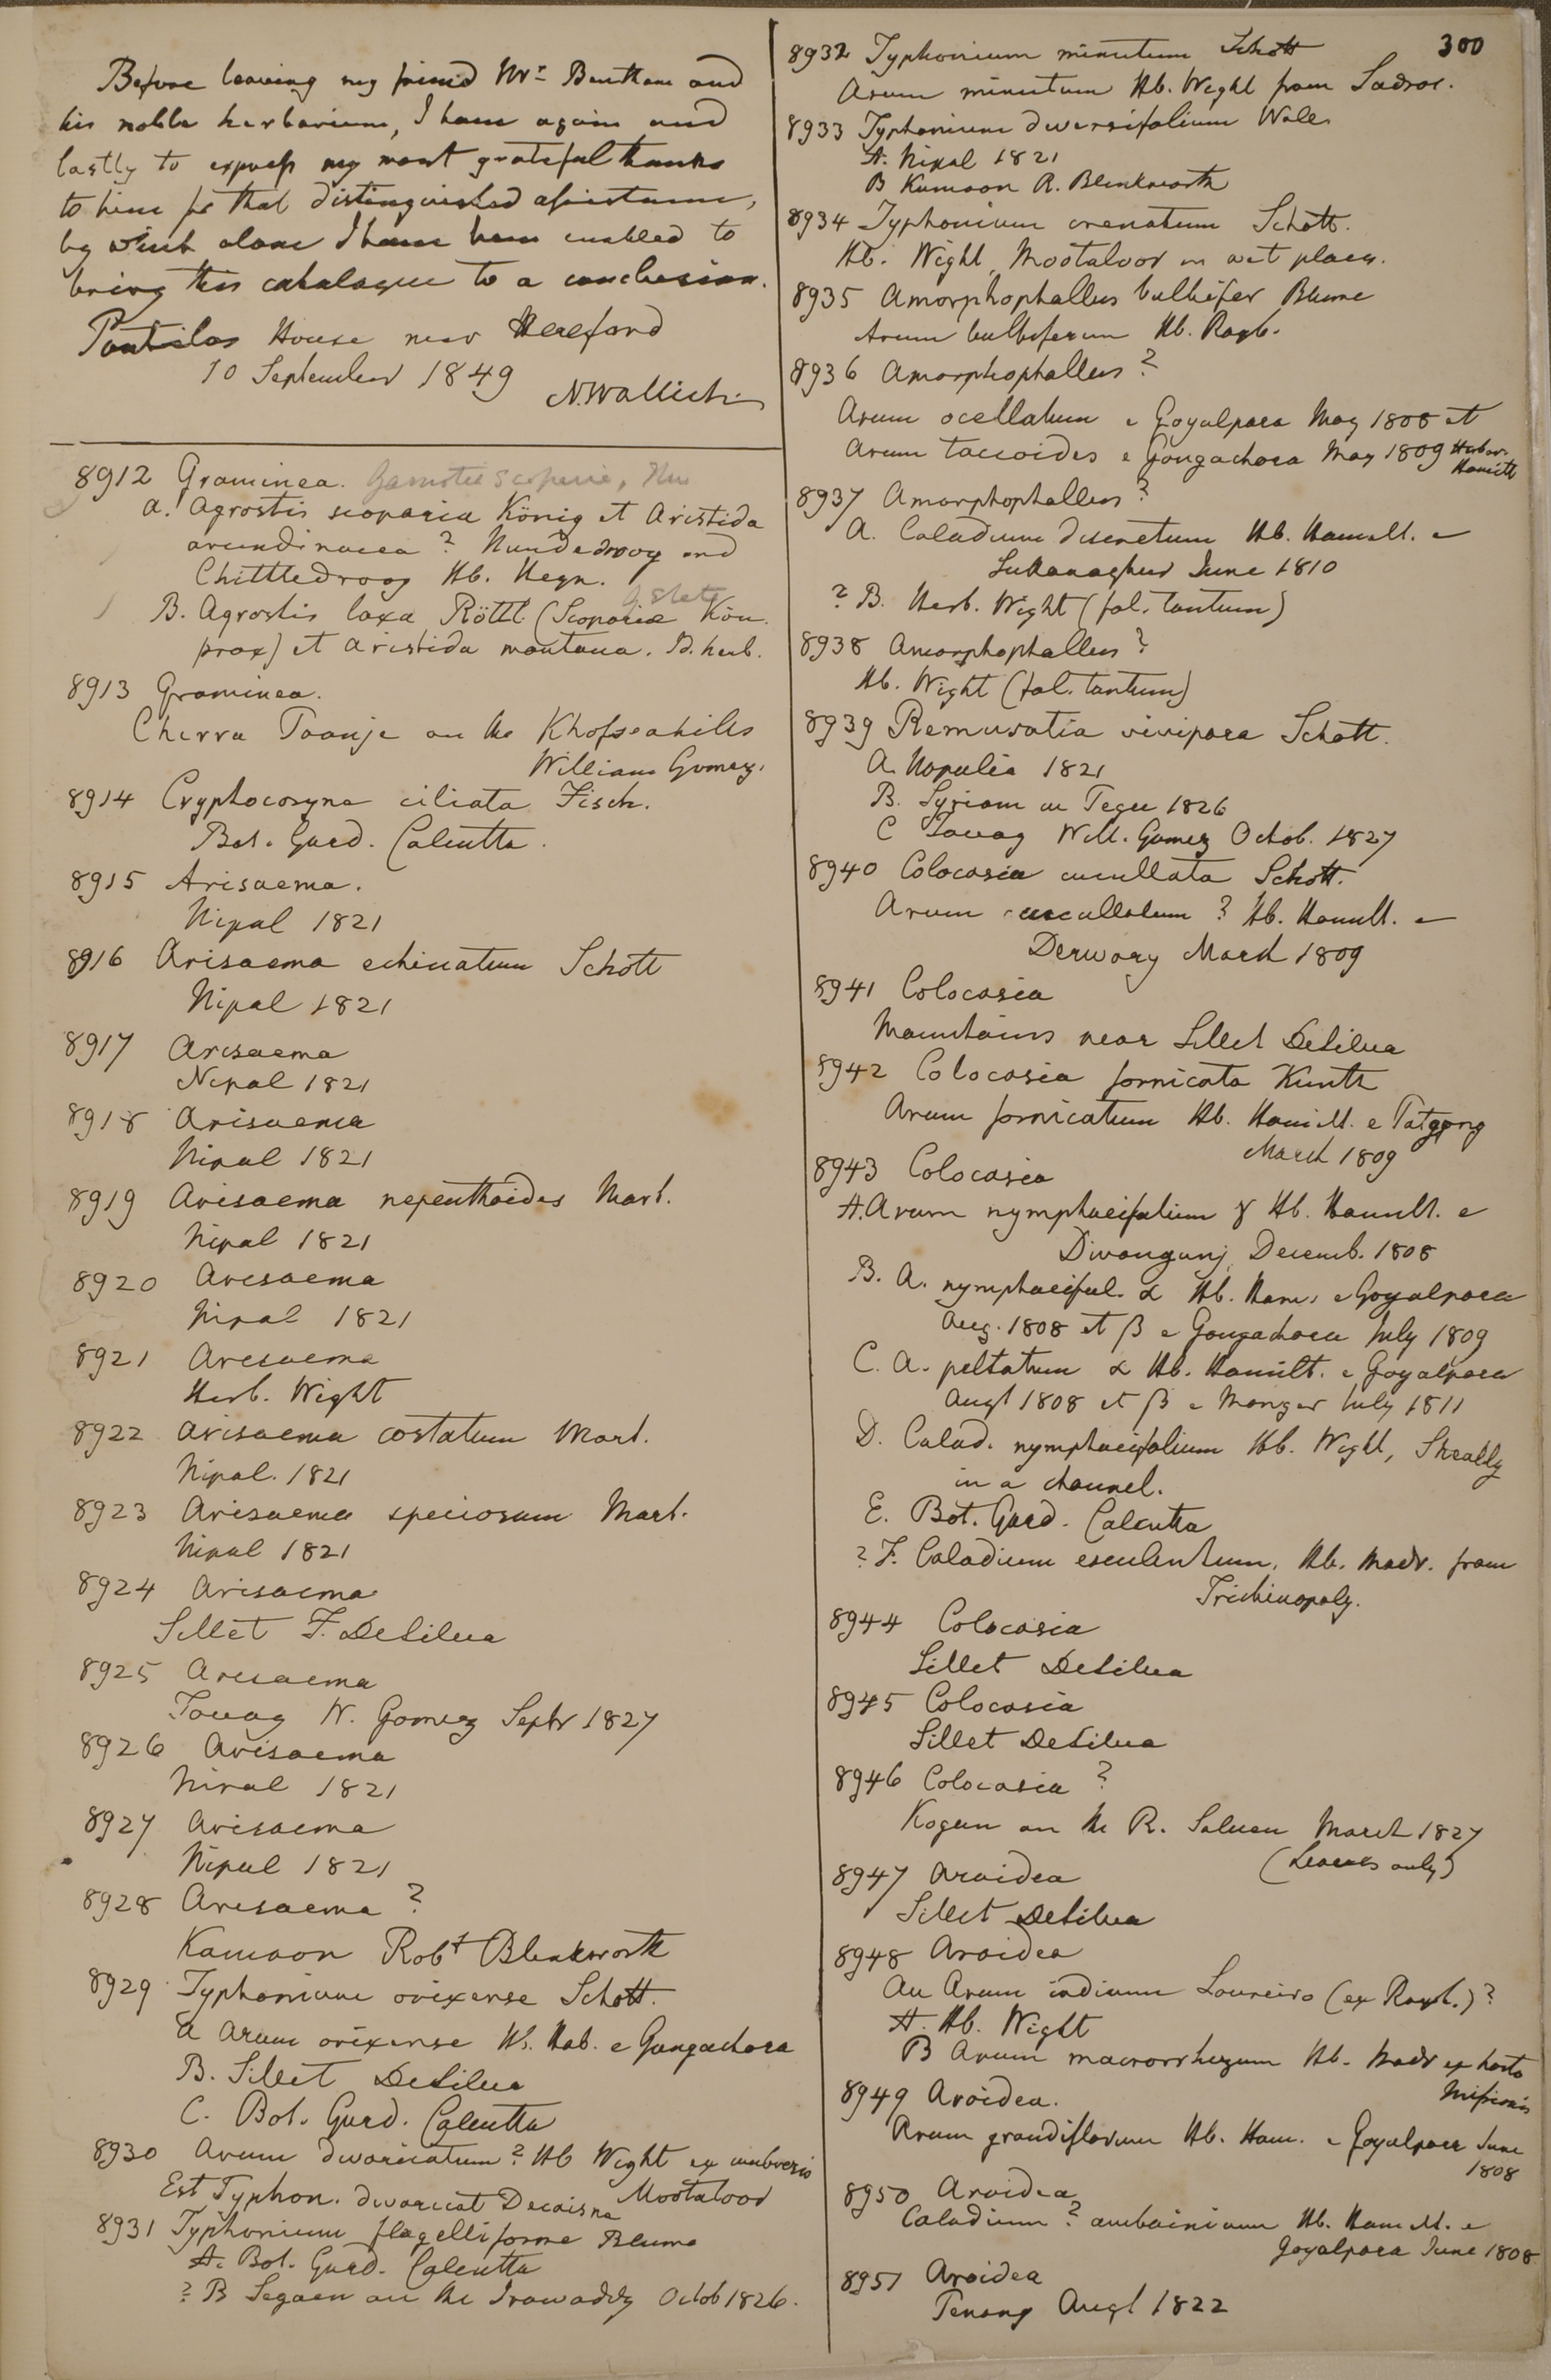 Before leaving my friend Mr. Bentham and
his noble herbarium, I have again and
lastly to express my most grateful thanks
to him for that distinguished assistance,
by which alone I have been enabled to
bring this catalogue to a conclusion.
Pontilas House near Hereford
10 September 1849
N. Wallich
8912 Graminea.
a. Agrostis scoparia König et Aristida
arundinacea ? Nundedroog and
Chittledroog Hb. Heyn.
B. Agrostis laxa Röttl. (Scopariae Kön.
prox) et Aristida montana. id. herb.
8913 Graminea.
Cherra Poonje on the Khasseahills
William Gomez.
8914 Cryptocoryne ciliata Fisch.
Bot. Gard. Calcutta.
8915 Arisaema.
Nipal 1821
8916 Arisaema echinatum Schott
Nipal 1821
8917 Arisaema
Nepal 1821
8918 Arisaema
Nipal 1821
8919 Arisaema nepenthoides Mart.
Nipal 1821
8920 Arisaema
Nipal 1821
8921 Arisaema
Herb. Wight
8922 Arisaema costatum Mart.
Nipal. 1821
8923 Arisaema speciosum Mart.
Nipal 1821
8924 Arisaema
Sillet F. DeSilva
8925 Arisaema
Tavoy W. Gomez Septr 1827
8926 Arisaema
Nipal 1821
8927 Arisaema
Nipal 1821
8928 Arisaema ?
Kamaon Robt Blinkworth
8929 Typhonium orixense Schott.
a Arum orixense Hb. Ham. e Gongachora
B. Sillet DeSilva
C. Bot. Gard. Calcutta
8930 Arum divaricatum ? Hb Wight ex
Mootaloor
Est Typhon. divaricat Decaisne
8931 Typhonium flagelliforme Blume
A. Bot. Gard. Calcutta
? B Segaen on the Irawaddy Octob 1826.
300
8932 Typhonium minutum Schott
Arum minutum Hb. Wight from Sadras.
8933 Typhonium diversifolium Wall.
A. Nipal 1821
B Kumaon R. Blinkworth
8934 Typhonium crenatum Schott.
Hb. Wight, Mootaloor in wet places.
8935 Amorphophallus bulbifer Blume
Arum bulbiferum Hb. Roxb.
8936 Amorphophallus ?
Arum ocellatum e Goyalpara May 1808 et
Arum taccoides e Gongachora May 1809 Herbar.
Hamilt
8937 Amorphophallus ?
A. Caladium Hb. Hamilt. e
June 1810
? B. Herb. Wight (fol. tantum)
8938 Amorphophallus ?
Hb. Wight (fol. tantum)
8939 Remusatia vivipara Schott.
A. Napalia 1821
B. Syriam in Pegu 1826
C Tavoy Will. Gomez Octob. 1827
8940 Colocasia cucullata Schott.
Arum cucullatum ? Hb. Hamilt. e
Derwary March 1809
8941 Colocasia
Mountains near Sillet DeSilva
8942 Colocasia fornicata Kunth
Arum fornicatum Hb. Hamilt. e Tatgong
March 1809
8943 Colocasia
A. Arum nymphaeifolium γ Hb. Hamilt. e
Divangunj Decemb. 1808
B. A. nymphaeifol. α Hb. Ham. e Goyalpara
Aug. 1808 et β e Gongachora July 1809
C. A. peltatum α Hb. Hamilt. e Goyalpara
Augt 1808 et β e Monger July 1811
D. Calad. nymphaeifolium Hb. Wight, Shealy
in a channel.
E. Bot. Gard. Calcutta
? F. Caladium esculentum, Hb. Madr. from
Trichinopoly.
8944 Colocasia
Sillet DeSilva
8945 Colocasia
Sillet DeSilva
8946 Colocasia ?
Kogun on the R. Saluen March 1827
(Leaves only)
8947 Aroidea
Sillet DeSilva
8948 Aroidea
An Arum indicum Loureiro (ex Roxb.) ?
A. Hb. Wight
B Arum macrorrhizum Hb. Madr ex horto
Missionis
8949 Aroidea.
Arum grandiflorum Hb. Ham. e Goyalpara June
1808
8950 Aroidea
Caladium ? amboinicum Hb. Hamilt. e
Goyalpara June 1808
8951 Aroidea
Penang Augt 1822